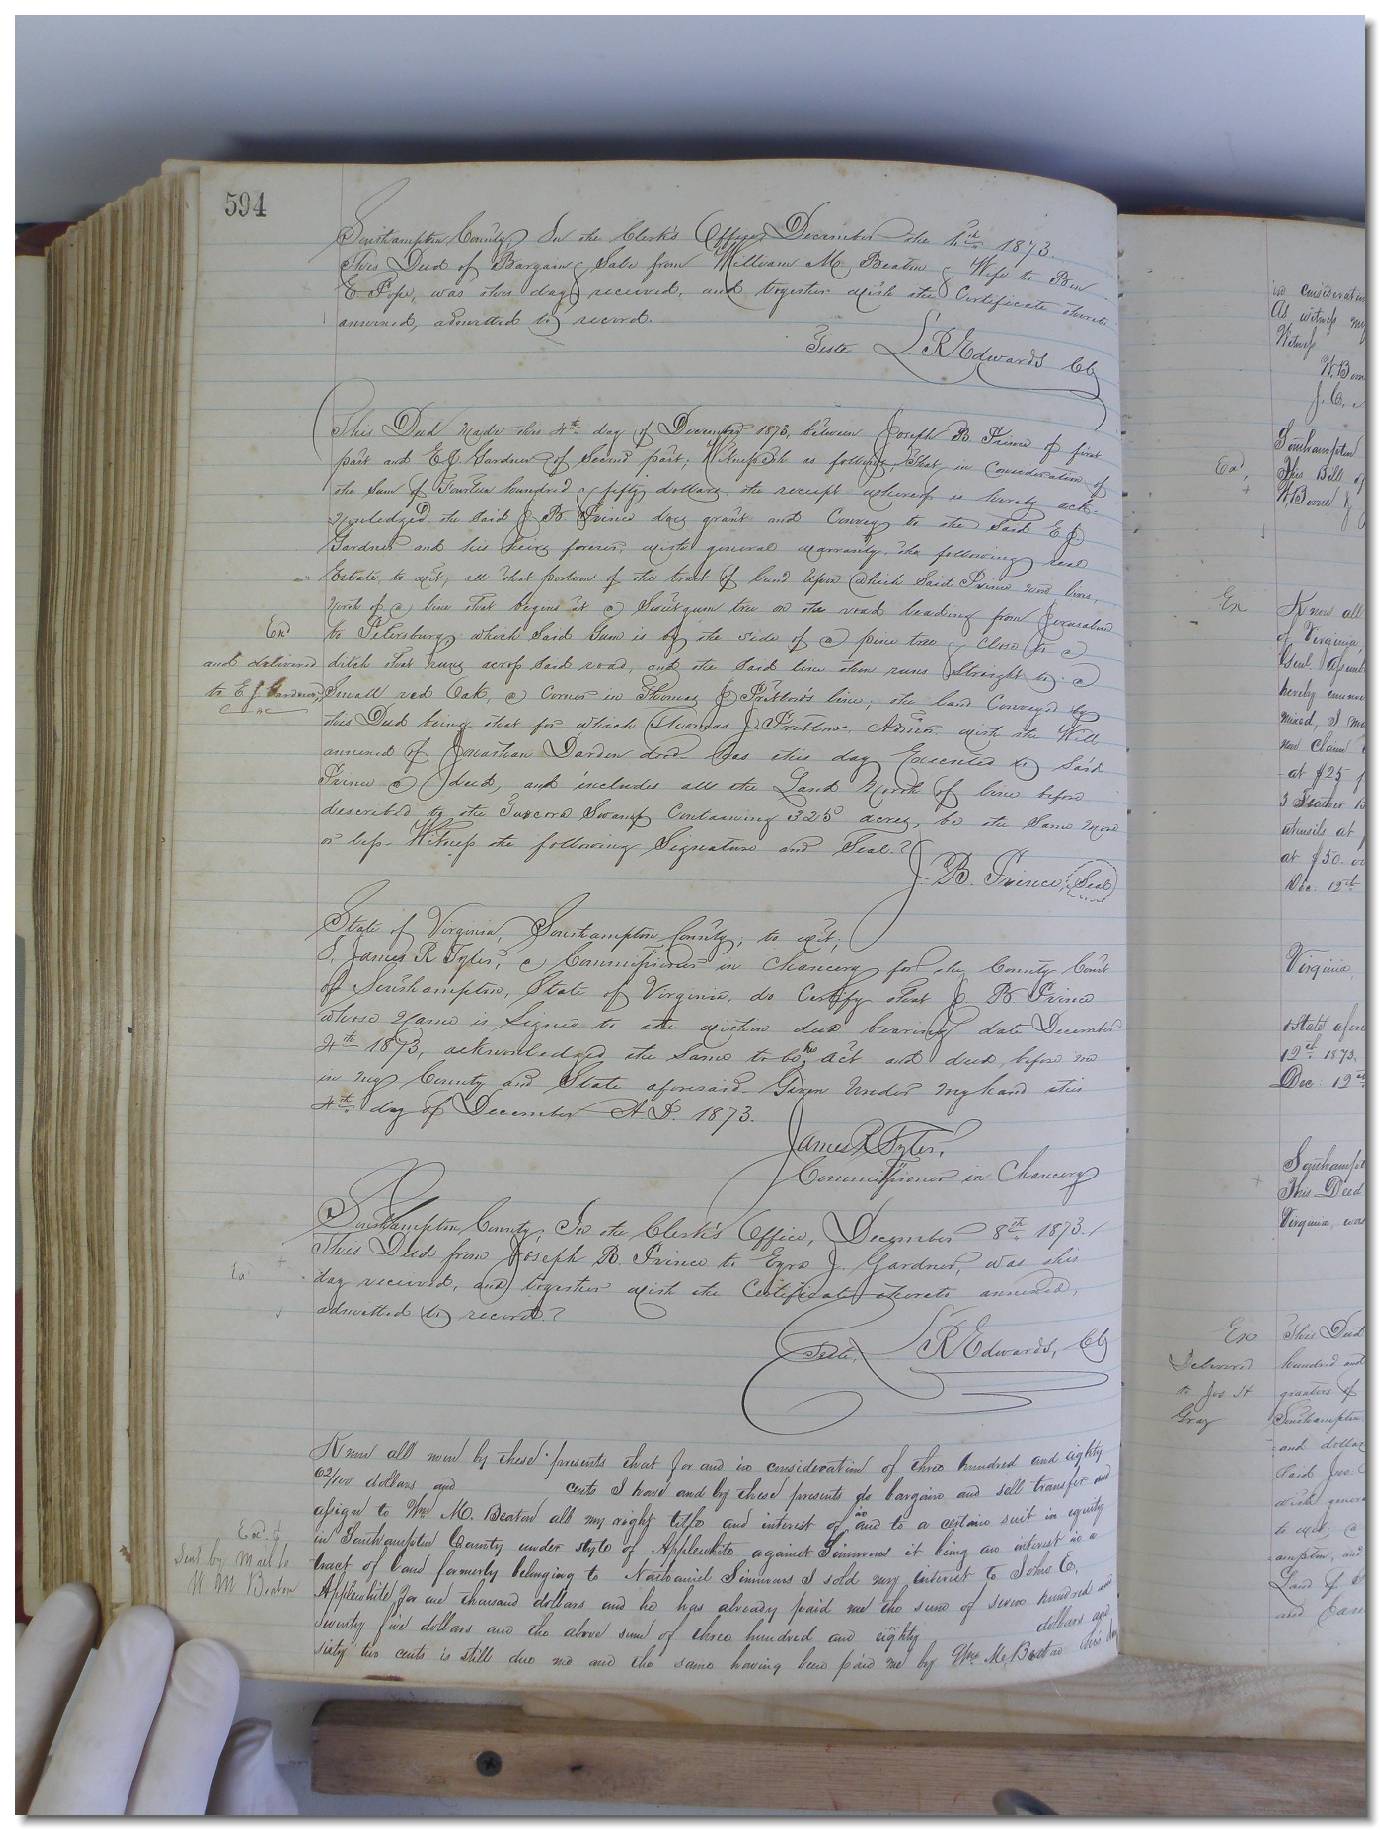 594
Southampton County, In the Clerk's Office, December the 4th 1873.
This Deed of Bargain & Sale from William M. Beaton & Wife to Ben
E Pope, was this day received, and together with the Certificate thereto
annexed, admitted to record.
Teste L R Edwards Clk
This Deed made this 4th day of December 1873, between Joseph B. Prince of first
part and E J Gardner of Second part; Witnesseth as follows, That in Consideration of
the Sum of Fourteen hundred & fifty dollars the receipt whereof is hereby ack-
nowledged, the Said J B Prince does grant and Convey to the Said E J
Gardner and his heirs forever, with general warranty, the following real
Estate, to wit; all that portion of the tract of land upon which Said Prince now lives,
North of a line that begins at a Sweetgum tree on the road leading from Jerusalem
to Petersburg which Said Gum is by the side of a pine tree & close to a
ditch that runs across Said road, and the Said line then runs Straight to a
Small red Oak, a Corner in Thomas J Pretlow's line; the land Conveyed by
this Deed being that for which Thomas J. Pretlow Admr. with the Will
annexed of Jonathan Darden decd has this day Executed to Said
Prince a deed, and includes all the Land North of line before
described to the Tuscora Swamp Containing 325 acres, be the Same more
or less. Witness the following Signature and Seal.
J. B. Prince, (Seal)
Exd
and delivered
to E J Gardner
State of Virginia, Southampton County, to wit;
I, James R Tyler, a Commissioner in Chancery for the County Court
of Southampton, State of Virginia, do Certify that J. B Prince
whose Name is Signed to the within deed bearing date December
4th 1873, acknowledged the Same to be his act and deed before me
in my County and State aforesaid. Given under my hand this
4th day of December A.D. 1873.
James R Tyler,
Commissioner in Chancery
Southampton County; In the Clerk's Office, December 8th 1873.
This Deed from Joseph B. Prince to Ezra J. Gardner, was this
day received, and together with the Certificate thereto annexed,
admitted to record.
Ex
Teste, L R Edwards, Clk
Know all men by these presents that for and in consideration of three hundred and eighty
62/100 dollars and cents I have and by these presents do bargain and sell transfer and
assign to Wm M. Beaton all my right title and interest of in and to a certain suit in equity
in Southampton County under style of Applewhite against Simmons it being an interest in a
tract of land formerly belonging to Nathaniel Simmons I sold my interest to John E,
Applewhite for one thousand dollars and he has already paid me the sum of seven hundred and
seventy five dollars and the above sum of three hundred and eighty dollars and
sixty two cents is still due me and the same having been paid me by Wm M. Beaton this day
Exd &
Sent by Mail to
W M Beaton
in consideration
As witness my
Witness
W. B
J. C.
Southampton
This Bill of
Exd,
Ex
Know all
of Virginia,
hereby
mixed, I
now claim
at $25
utensils at
at $50.
Dec. 12th
Virginia,
State
12th 1873.
Dec. 12th
Southampton
This Deed
Virginia, was
Exd
Delivered
to Jos H
Gray
This Deed
hundred and
grantors of
Southampton
and dollars
Said Jos.
with general
to wit; a
ampton, and
Land of
and